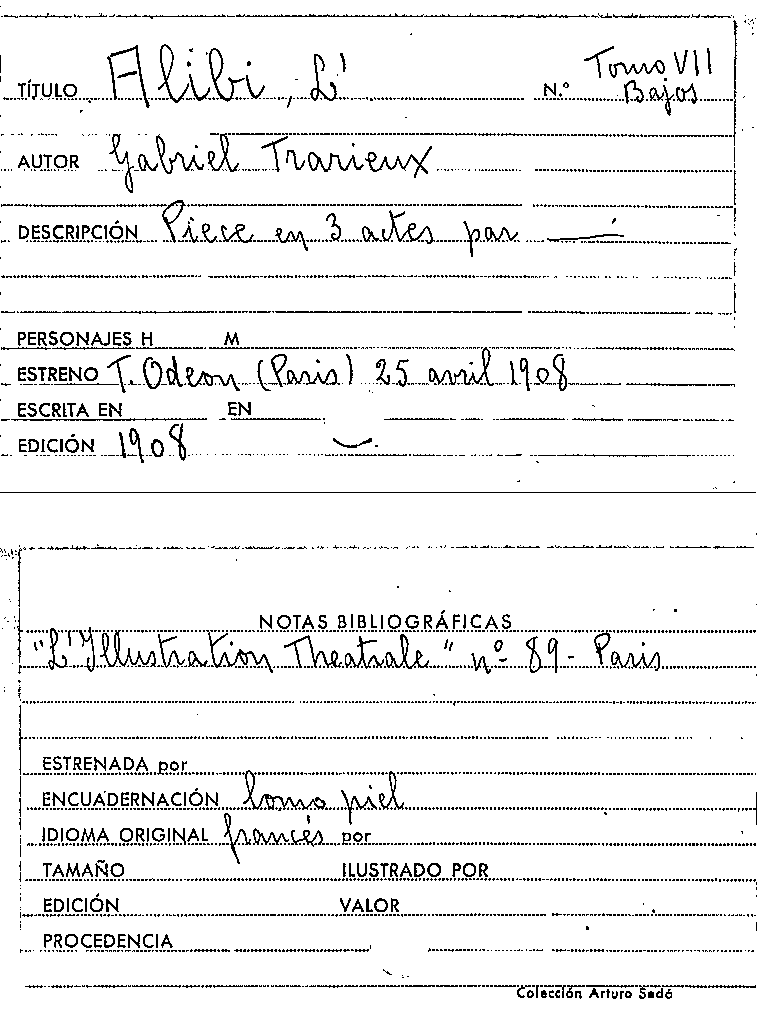 TÍTULO Alibi, L' N.º Tomo VII
Bajos
AUTOR Gabriel Trarieux
DESCRIPCIÓN Piece en 3 actes par —
PERSONAJES H M
ESTRENO T. Odeon (Paris) 25 avril 1908
ESCRITA EN EN
EDICIÓN 1908
NOTAS BIBLIOGRÁFICAS
"L'Illustration Theatrale" nº 89 - Paris
ESTRENADA por
ENCUADERNACIÓN lomo piel
IDIOMA ORIGINAL francés por
TAMAÑO ILUSTRADO POR
EDICIÓN VALOR
PROCEDENCIA
Colección Arturo Sedó